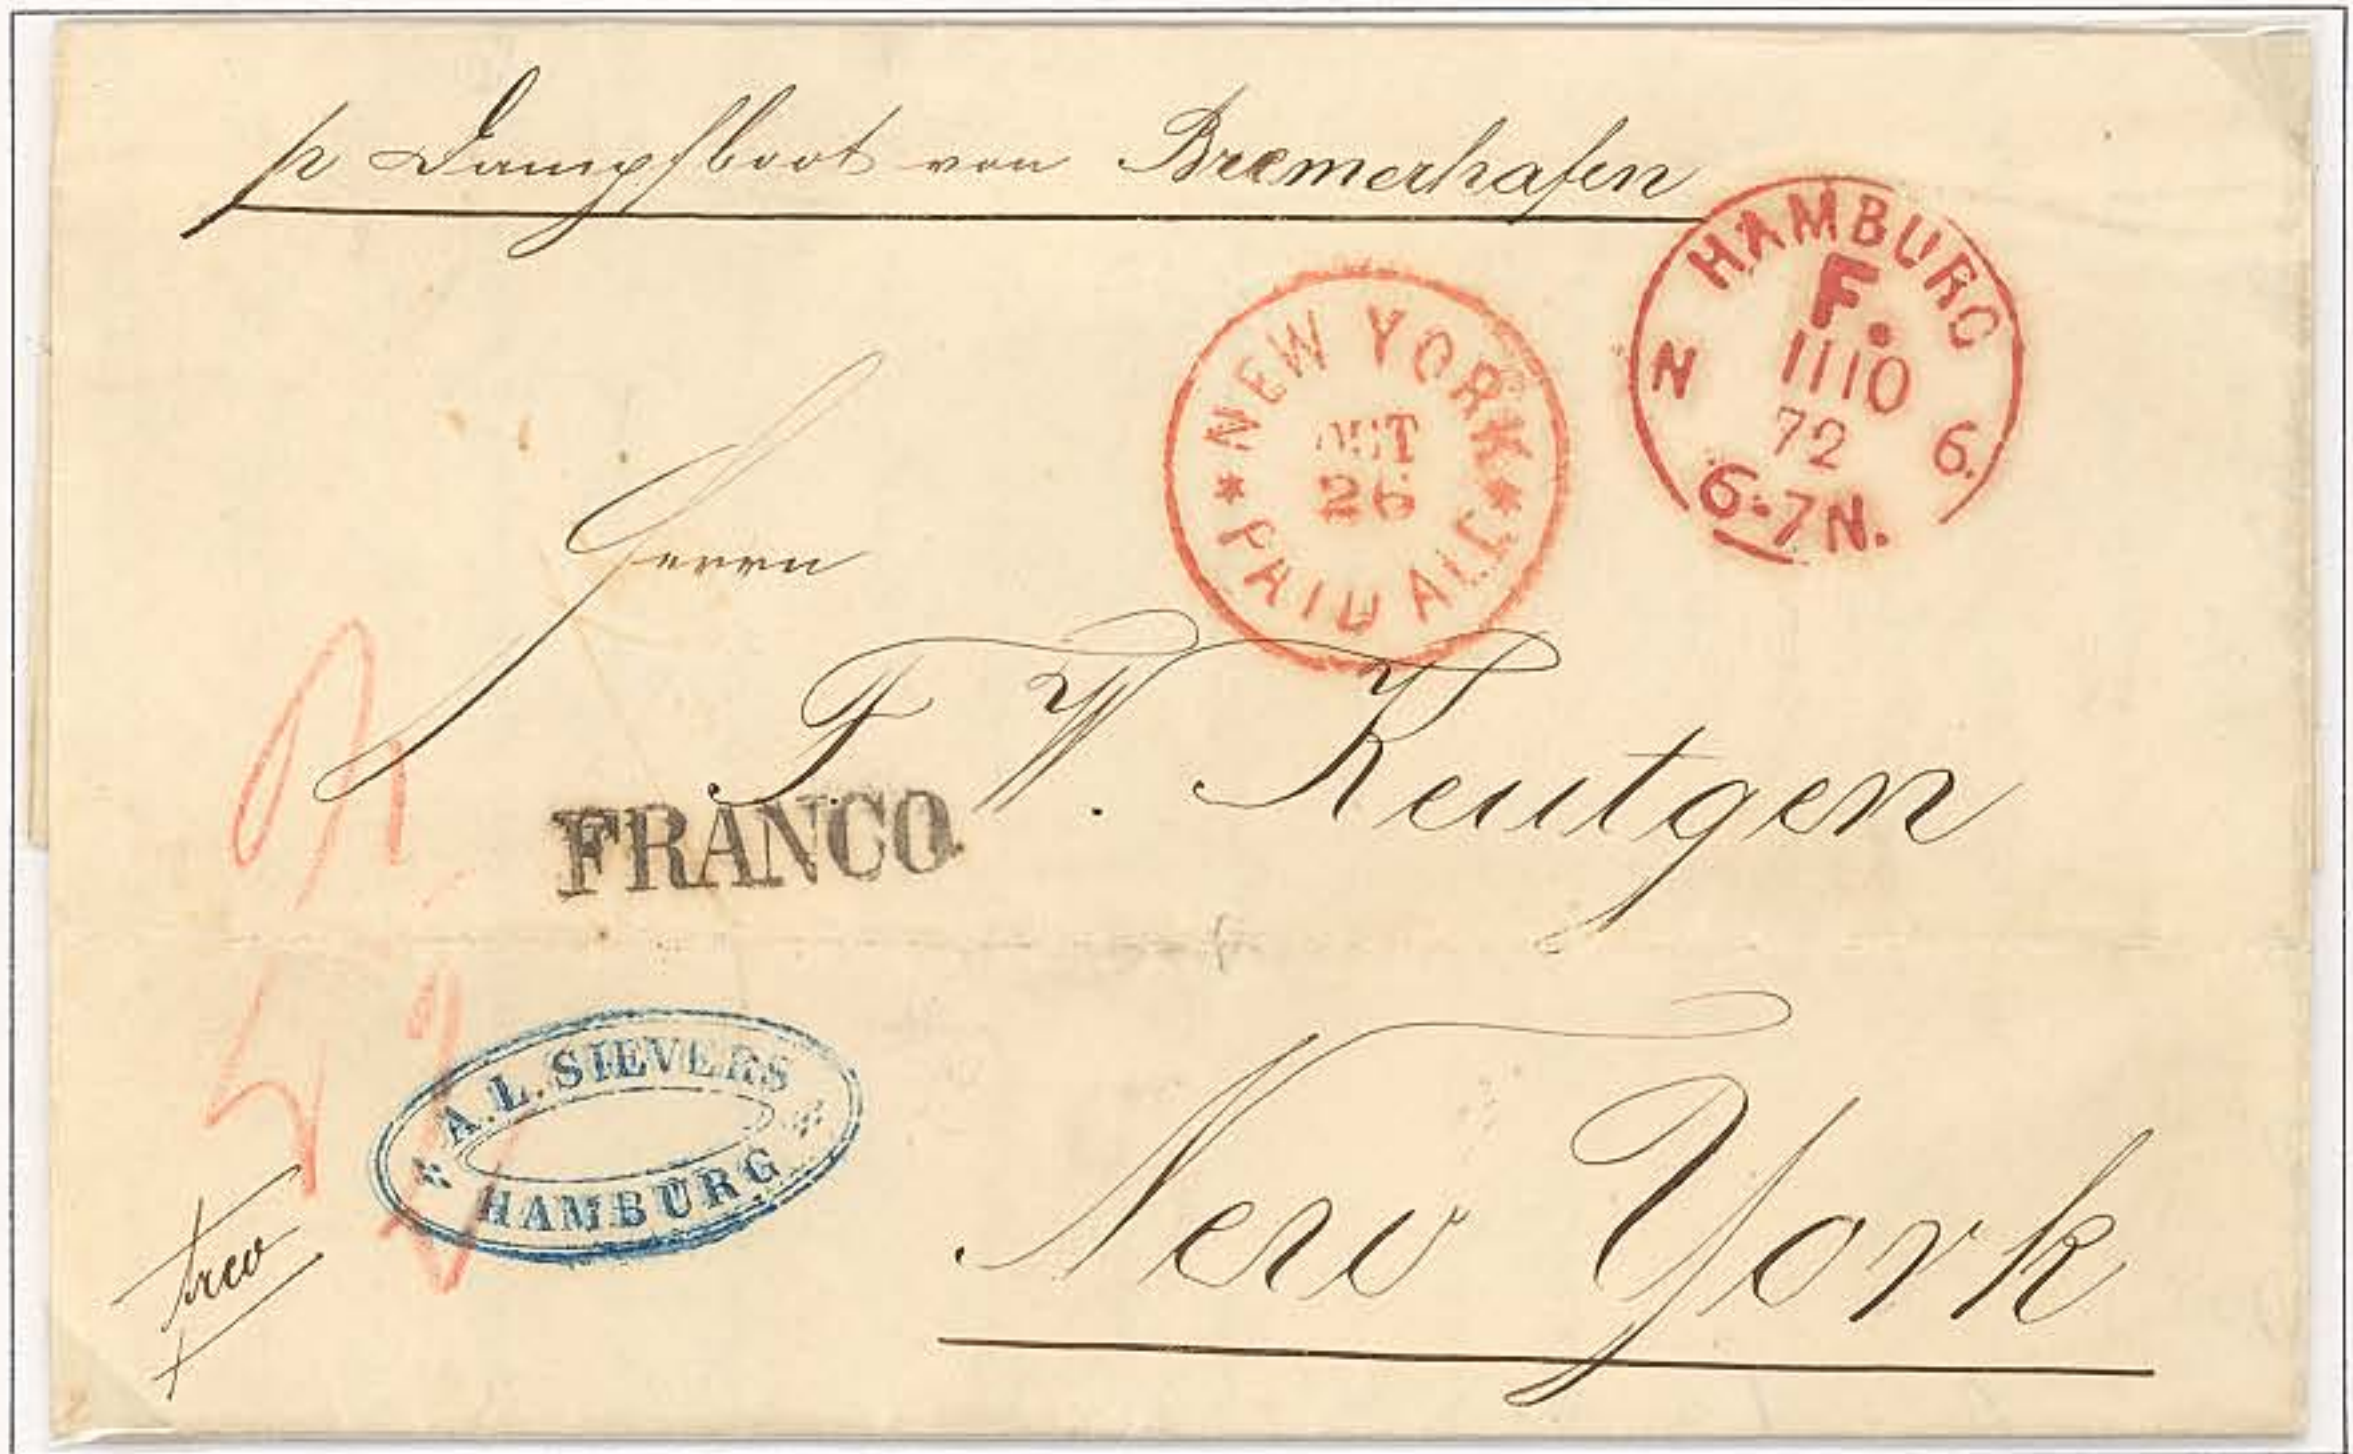 p Dampfboot von Bremerhafen
HAMBURG
F.
11 10
72
N 6.
6-7 N.
* NEW YORK *
OCT
26
PAID ALL
Herrn
F. W. Keutgen
FRANCO.
A. L. SIEVERS
HAMBURG
New York
frco